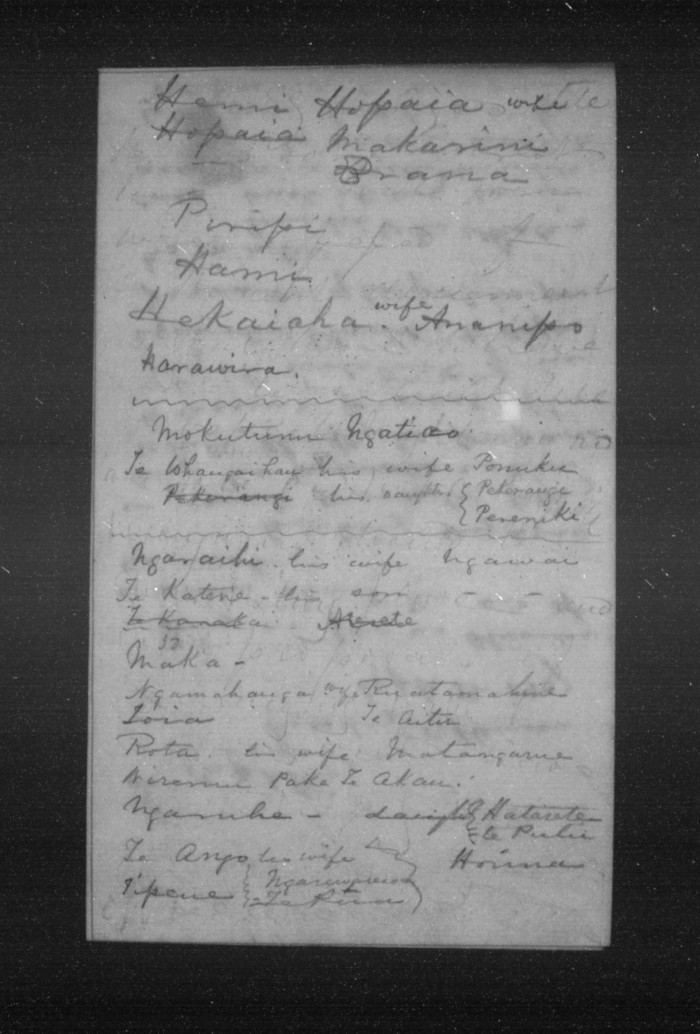 Hemi Hopaia wife
Hopaia Makarini
Brama
Piripi
Hami
Hekaiaha. wife Ananipo
Harawira.
Mokutunu Ngatiao
Te Whangaihau his wife Ponuku
Pekerangi his daughters { Pekerangi
{ Pereniki
Ngaraihi his wife Ngawai
Te Katene - his son
Te Kanakai
Maka -
Ngamahanga wife Ruatamahine
Ioia Te Aitu
Rota. his wife Matangarue
Wiremu Pake Te Akau.
Ngaruhe -
te Puhi
Te Ango his wife Hoúna
Te Rina